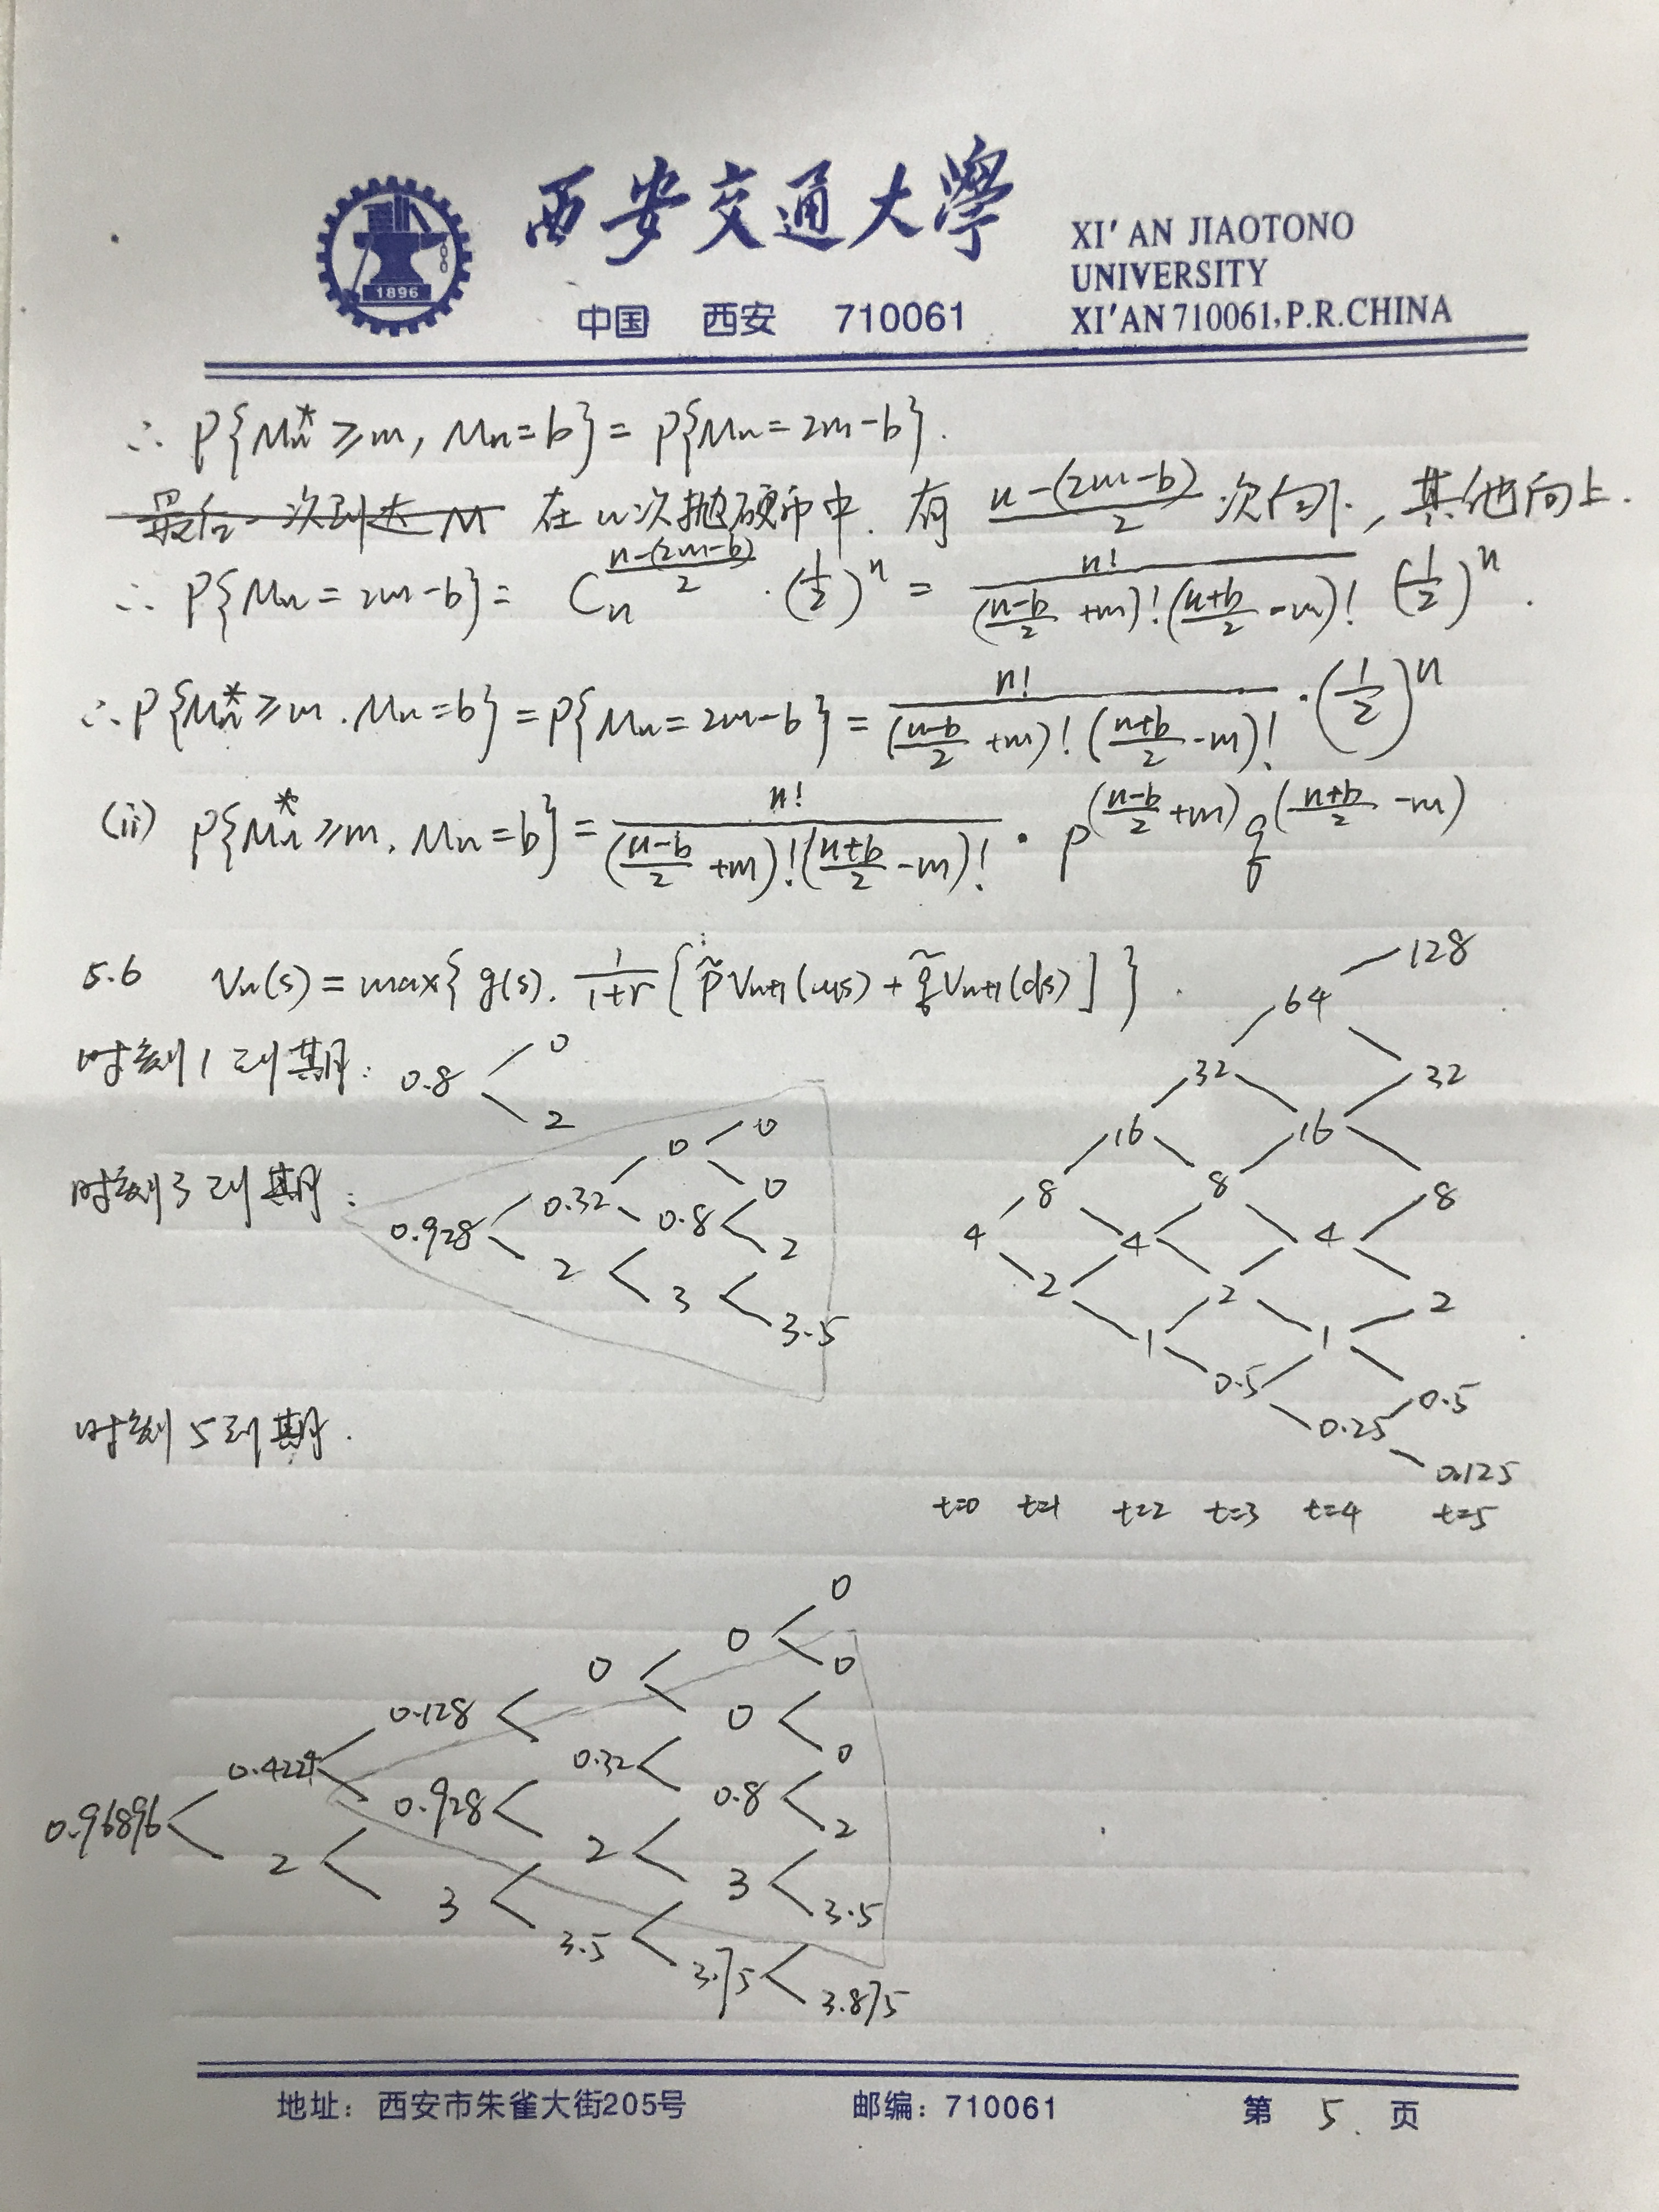 西安交通大學
XI'AN JIAOTONO
UNIVERSITY
中国 西安 710061
XI'AN 710061, P.R.CHINA
1896
∴ P{Mn* ≥ m, Mn = b} = P{Mn = 2m-b}.
最后一次到达 M 在n次抛硬币中. 有 (n-(2m-b))/2 次向下, 其他向上.
∴ P{Mn = 2m-b} = Cn^((n-(2m-b))/2) · (1/2)^n = n! / (((n-b)/2 +m)! ((n+b)/2 -m)!) (1/2)^n .
∴ P{Mn* ≥ m. Mn = b} = P{Mn = 2m-b} = n! / (((n-b)/2 +m)! ((n+b)/2 -m)!) · (1/2)^n
(ii) P{Mn* ≥ m, Mn = b} = n! / (((n-b)/2 +m)! ((n+b)/2 -m)!) · p^((n-b)/2 +m) q^((n+b)/2 -m)
5.6 Vn(s) = max{ g(s). 1/(1+r) [ p̃ Vn+1(us) + q̃ Vn+1(ds) ] } .
时刻1到期: 0.8
0
2
时刻3到期:
0
0
0.32
0
0.928
0.8
2
2
3
3.5
128
64
32
32
16
16
8
8
8
4
4
4
2
2
2
1
1
0.5
0.5
0.25
0.125
t=0 t=1 t=2 t=3 t=4 t=5
时刻5到期.
0
0
0
0
0.128
0
0.4224
0.32
0
0.96896
0.928
0.8
2
2
2
3
3
3.5
3.5
3.75
3.875
地址: 西安市朱雀大街205号 邮编: 710061 第 5 页